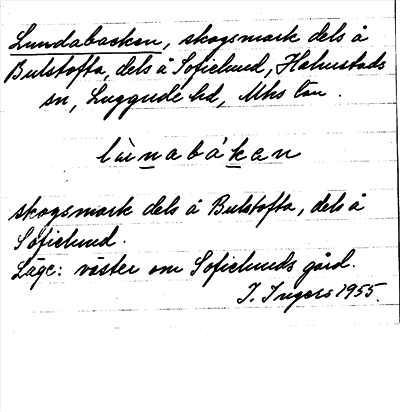 Lundabacken, skogsmark dels å
Bulstofta, dels å Sofielund, Halmstads
sn, Luggude hd, Mhs län.
lùnabákan
skogsmark dels å Bulstofta, dels å
Sofielund.
Läge: väster om Sofielunds gård.
I. Ingers 1955.